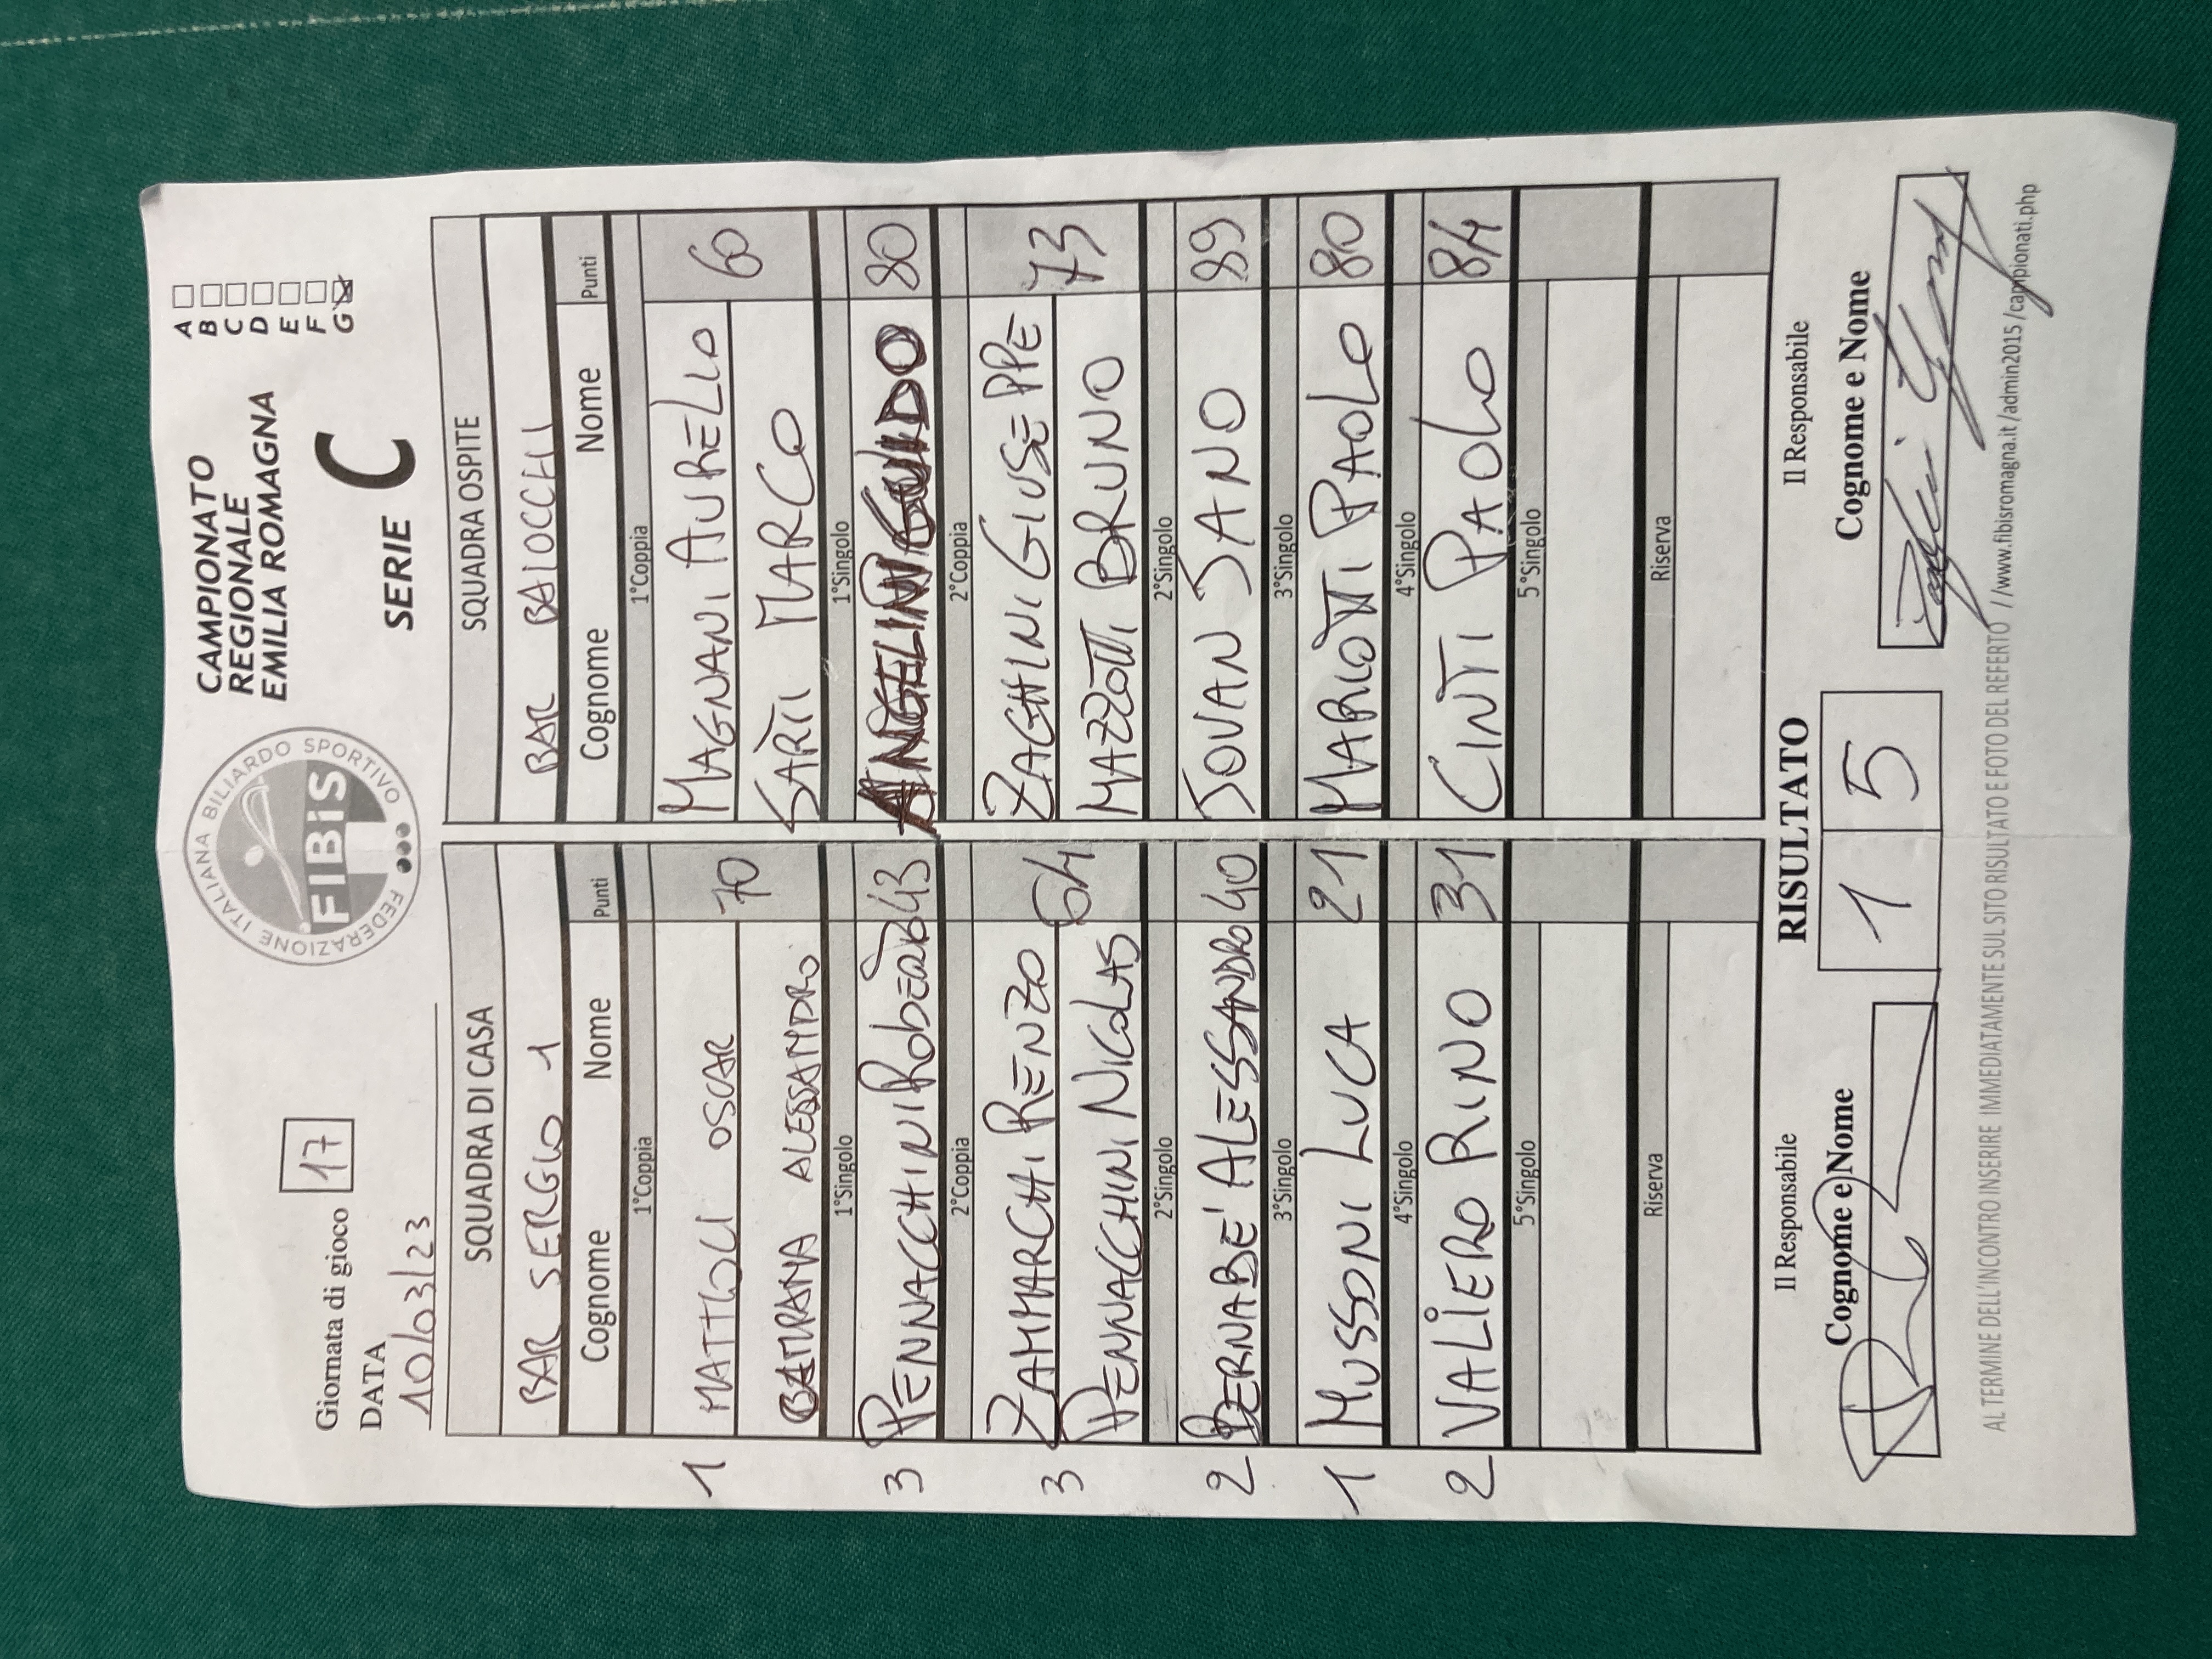 Giornata di gioco 17
DATA
10/03/23
FEDERAZIONE ITALIANA BILIARDO SPORTIVO
FIBiS
CAMPIONATO
REGIONALE
EMILIA ROMAGNA
SERIE C
A
B
C
D
E
F
G
SQUADRA DI CASA
SQUADRA OSPITE
BAR SERGIO 1
BAR BAIOCCHI
Cognome Nome Punti
Cognome Nome Punti
1°Coppia
1°Coppia
1 MATTIOLI OSCAR 70
MAGNANI AURELIO 60
ALESSANDRO
SARTI MARCO
1°Singolo
1°Singolo
3 PENNACCHINI ROBERTO 43
ANGELINI GUIDO 80
2°Coppia
2°Coppia
3 ZAMMARCHI RENZO 64
ZAGHINI GIUSEPPE 73
PENNACCHINI NICOLAS
MAZZOTTI BRUNO
2°Singolo
2°Singolo
2 BERNABE' ALESSANDRO 40
JOVAN JANO 89
3°Singolo
3°Singolo
1 MUSSONI LUCA 21
MARIOTTI PAOLO 80
4°Singolo
4°Singolo
2 VALIERO RINO 31
CINTI PAOLO 84
5°Singolo
5°Singolo
Riserva
Riserva
Il Responsabile
RISULTATO
Il Responsabile
Cognome e Nome
1 5
Cognome e Nome
AL TERMINE DELL'INCONTRO INSERIRE IMMEDIATAMENTE SUL SITO RISULTATO E FOTO DEL REFERTO //www.fibisromagna.it/admin2015/campionati.php